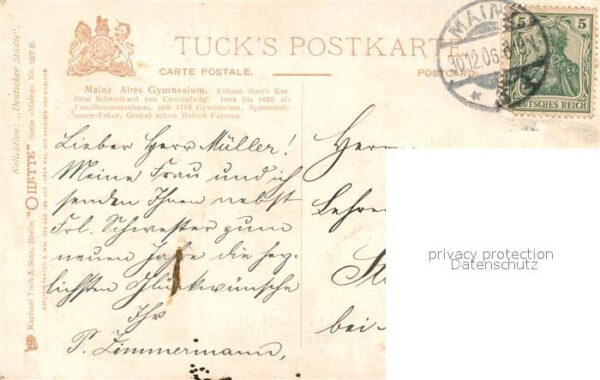 TUCK'S POSTKARTE
CARTE POSTALE. POSTCARD.
Mainz Altes Gymnasium. Erbaut durch Kur-
fürst Schweikard von Cronenberg. 1604 bis 1626 als
Familienstammhaus, seit 1798 Gymnasium, Spätrenais-
sance-Erker, Giebel schon Barock-Formen.
MAINZ
30.12.06.6-7N
5 5
DEUTSCHES REICH
Lieber Herr Müller!
Meine Frau und ich
senden Ihnen nebst
Frl. Schwester zum
neuen Jahre die herz-
lichsten Glückwünsche
Ihr
P. Zimmermann,
Herrn
Lehrer
bei
privacy protection
Datenschutz
Kollektion: „Deutscher Städte".
Serie „Mainz" No. 187 B.
Raphael Tuck & Sons, Berlin "OILETTE"